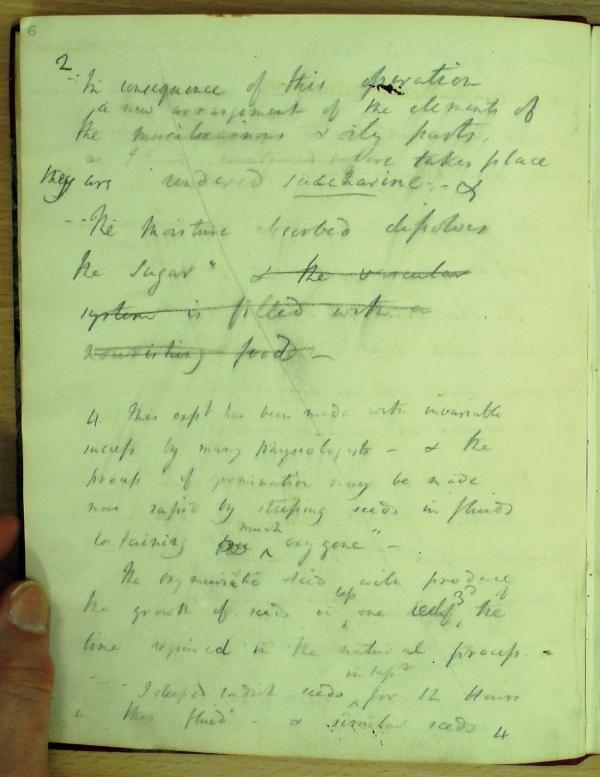 6
2
In consequence of this operation
a new arrangement of the elements of
the mucilaginous & oily parts,
as I have mentioned before takes place
they are rendered saccharine. - &
the moisture absorbed dissolves
the sugar " & the vascular
system is filled with a
nourishing food -
4. This expt has been made with invariable
success by many physiologists - & the
process of germination may be made
more rapid by steeping seeds in fluids
containing much oxygene" -
The oxymuriatic acid will produce
the growth of seeds in less one 3d the
time required in the natural process -
I steeped radish seeds for 12 Hours
in this fluid" - & similar seeds 4